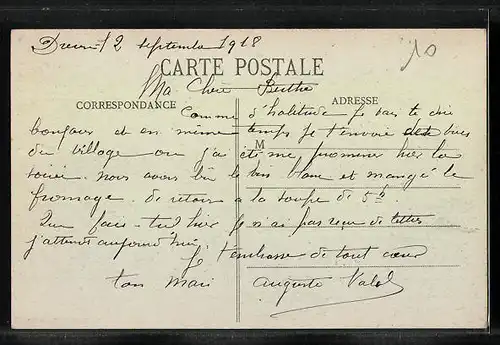 2 septembre 1918
10
CARTE POSTALE
Ma Chère Berthe
CORRESPONDANCE
ADRESSE
Comme d'habitude je vais te dire
bonjour et en même temps je t'envoie des vues
M
du village ou j'ai été me promener hier la
soirée. nous avons bu le vin blanc et mangé le
fromage. de retour a la soupe de 5h.
Que fais-tu hier je n'ai pas reçu de lettres
j'attends aujourd'hui.
Je t'embrasse de tout cœur
ton Mari Auguste